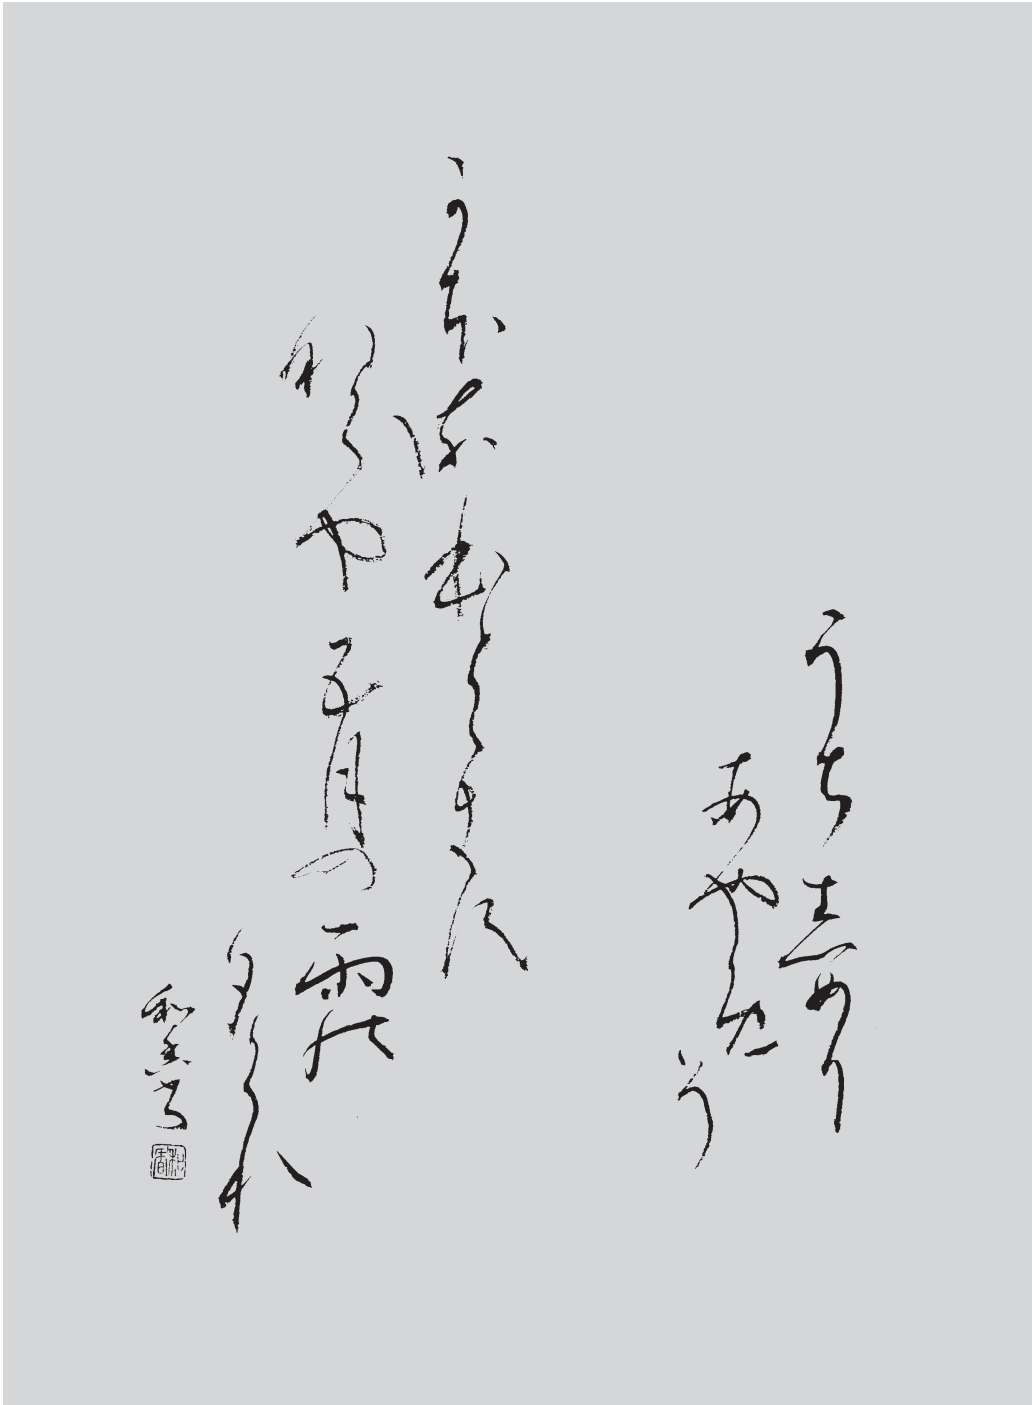 うち志めり
あやめそ
かほるほとゝきす
なくや五月の雨の
夕くれ
和香書